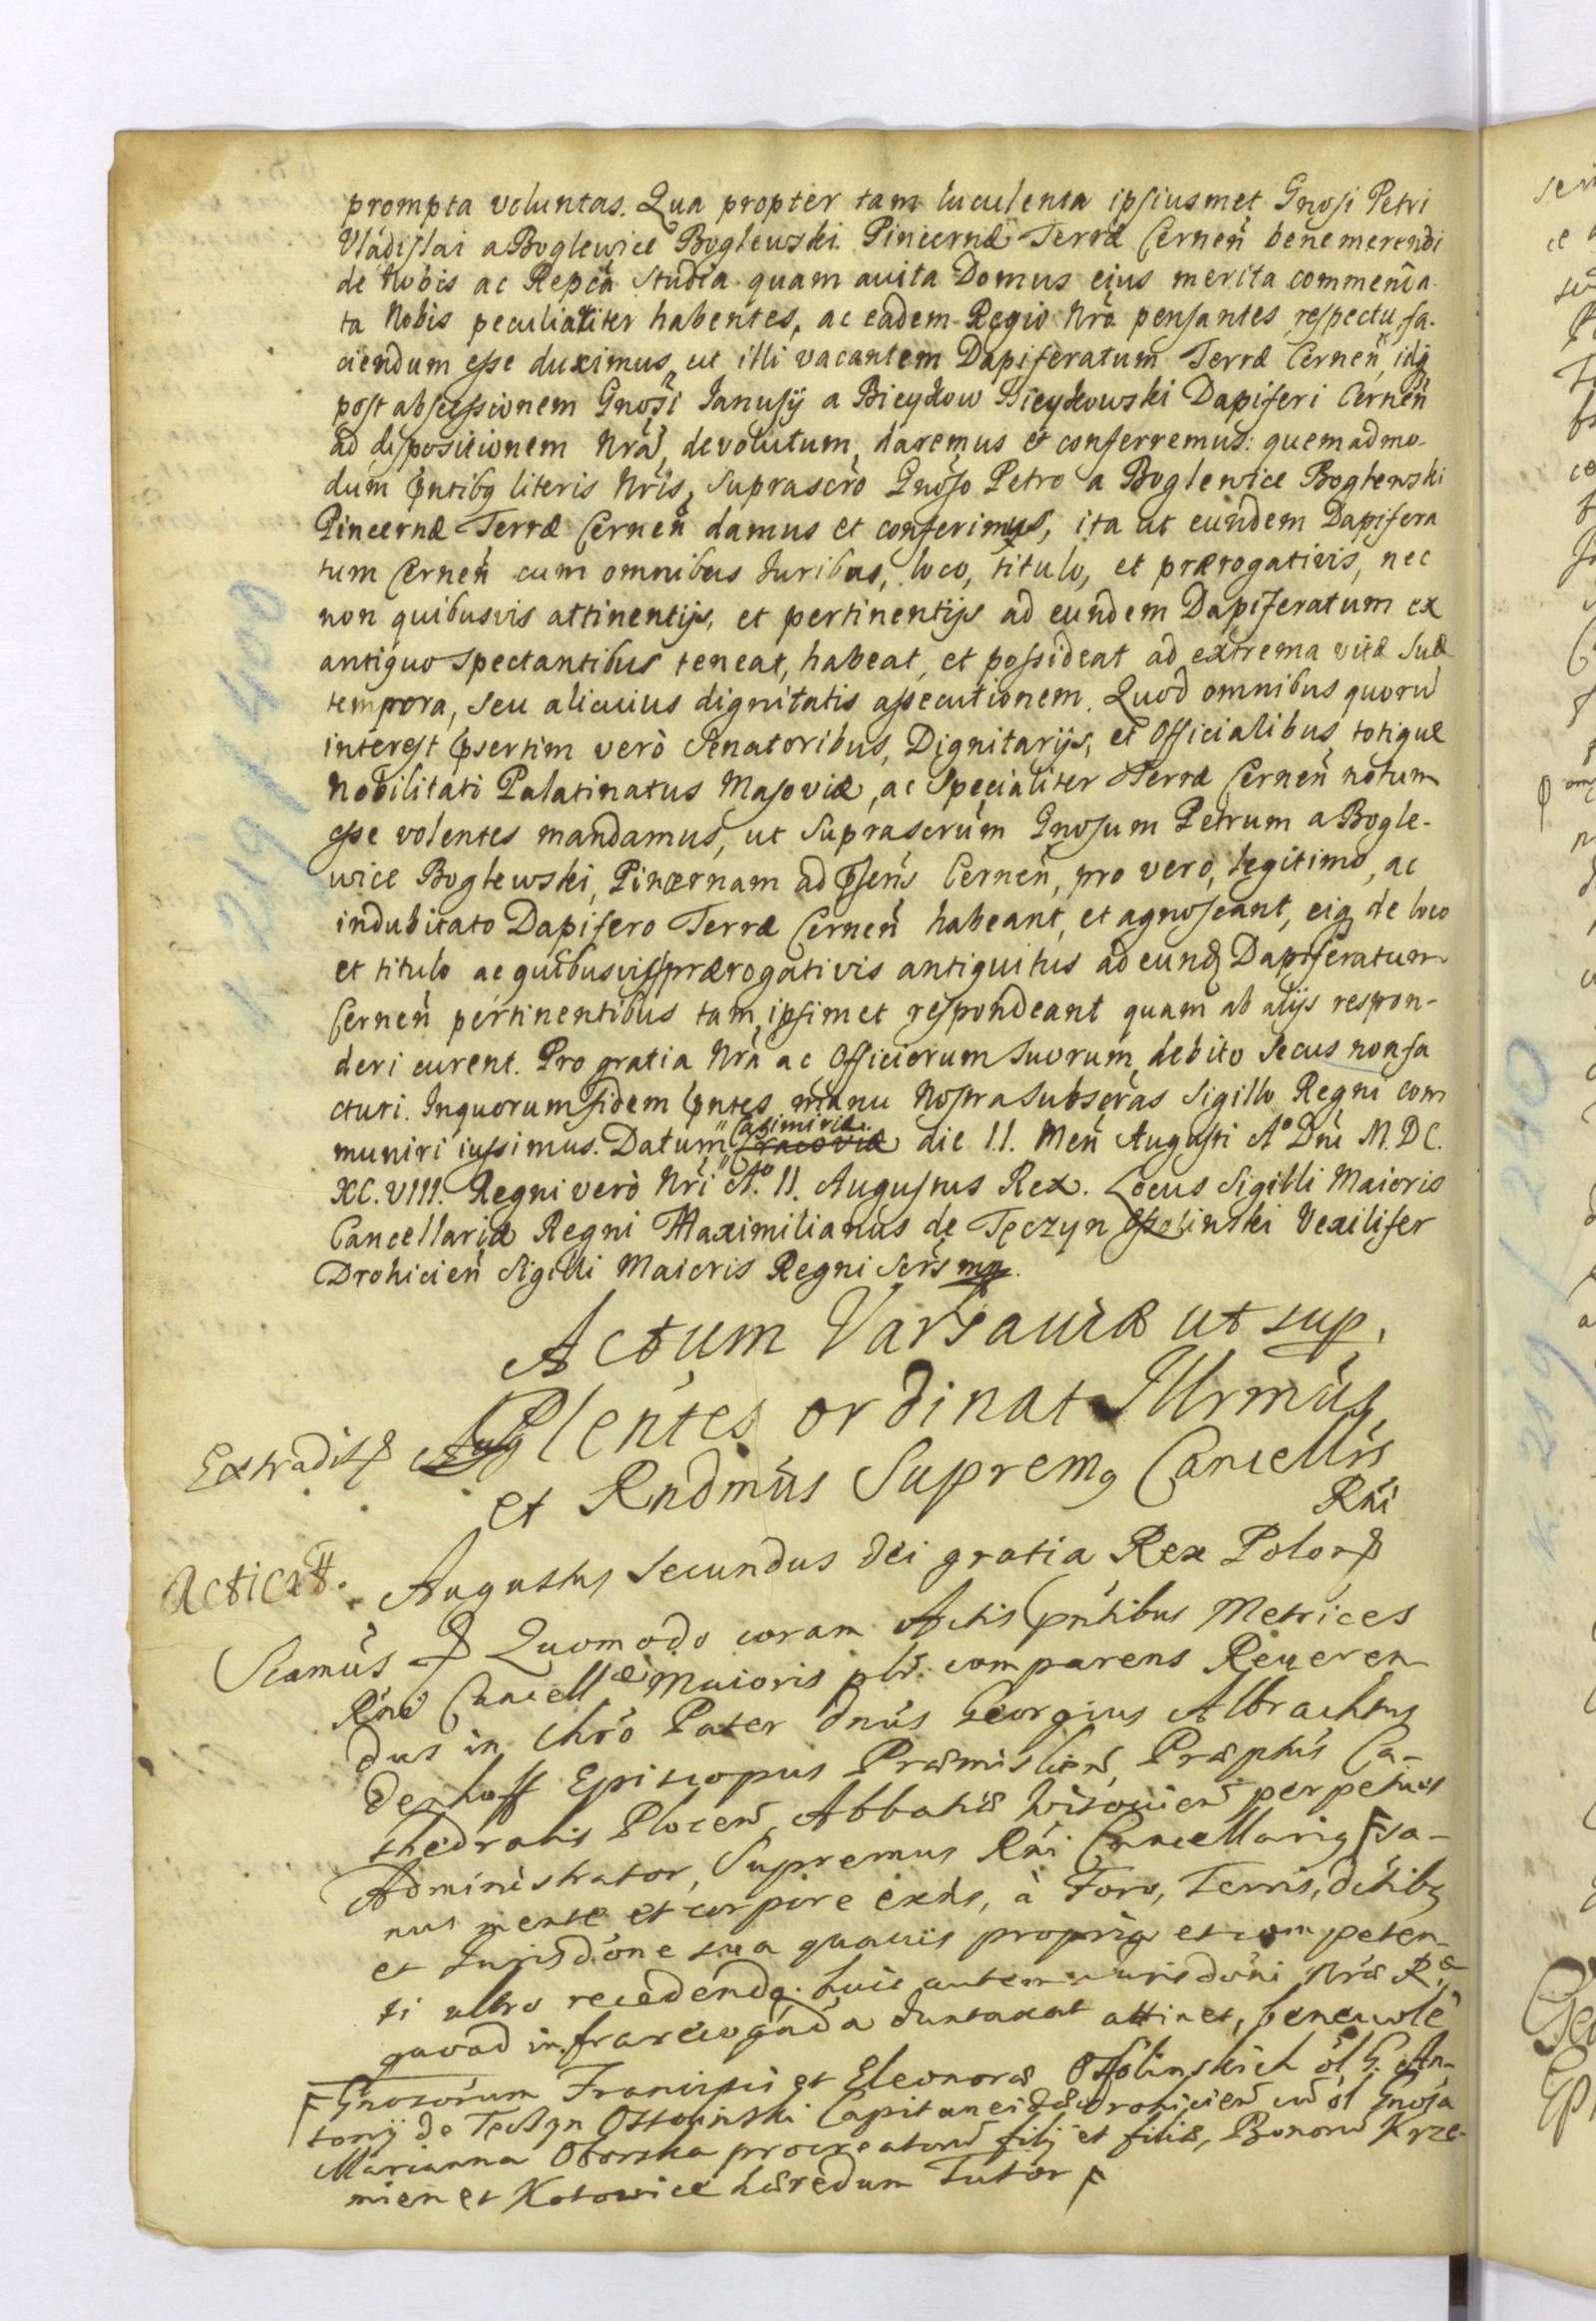 prompta voluntas. Qua propter tam luculenta ipsiusmet Gnosi Petri
Vladislai a Boglewice Boglewski Pincernæ Terræ Cernen̄ benemerendi
de Nobis ac Repca studia quam avita Domus eius merita commenda
ta Nobis peculiariter habentes, ac eadem Regio Nrō pensantes respectu, fa-
ciendum esse duximus, ut illi vacantem Dapiferatum Terræ Cernen̄, idq
post abscessionem Gnosi Janusij a Bieykow Bieykowski Dapiferi Cernen̄
ad dispositionem Nrā, devolutum, daremus et conferremus: quemadmo-
dum pntibq literis Nris, suprascro Gnoso Petro a Boglewice Boglewski
Pincernæ Terræ Cernen̄ damus et conferimus, ita ut eundem Dapifera
tum Cernen̄ cum omnibus Juribus, loco, titulo, et prærogativis, nec
non quibusvis attinentijs, et pertinentijs ad eundem Dapiferatum ex
antiquo spectantibus teneat, habeat, et possideat ad extrema vitæ suæ
tempora, seu alicuius dignitatis assecutionem. Quod omnibus quorū
interest psertim verò Senatoribus, Dignitarijs, et Officialibus, totique
Nobilitati Palatinatus Masoviæ, ac specialiter Terræ Cernen̄ notum
esse volentes mandamus, ut suprascrūm Gnosum Petrum a Bogle-
wice Boglewski, Pincernam ad psens Cernen̄, pro vero, legitimo, ac
indubitato Dapifero Terræ Cernen̄ habeant, et agnoscant, eiq de loco
et titulo ac quibusvis prærogativis antiquitus ad eund Dapiferatum
Cernen̄ pertinentibus tam ipsimet respondeant quam ab alijs respon-
deri curent. Pro gratia Nrā ac Officiorum suorum debito secus non fa
cturi. In quorum fidem pntes manu Nostra subscras Sigillo Regni com
muniri iussimus. Datum Casimiriæ Cracoviæ die 11. Men̄ Augusti A° Dni M.DC.
XC.VIII. Regni verò Nri A° 11. Augustus Rex. Locus Sigilli Maioris
Cancellariæ Regni Maximilianus de Tęczyn Ossolinski Vexilifer
Drohicien̄ Sigilli Maioris Regni Scrs mp.
Actum Varsaviæ ut sup.
Extradit
Plentes ordinat Illrmus
et Rndmus Supremq Cancellrs
Rni
Acticat. Augustus Secundus Dei gratia Rex Polor
Scamus Quomodo coram Actis pntibus Metrices
Rni Cancellæ Maioris plr. comparens Reveren
dus in Chro Pater Dnus Georgius Albrachtus
Denhoff Episcopus Præmislien̄, Præptus Ca-
thedralis Plocen̄, Abbatiæ Witovien̄ perpetuus
Administrator, Supremus Rni Cancellariq Fsa-
nus mente et corpore exns, à Foro, Terris, dctibq
et Jurisdone sua quavis propria et competen-
ti ultro recedendo. huic autem iurisdoni Nræ Ræ
quoad infrarecogada duntaxat attinet, benevole
F Gnosorum Francisci et Eleonoræ Ossolinskich ol G. An-
tonij de Teczyn Ossolinski Capitanei Drohicien̄ cū ol Gnosa
Marianna Oborska procreatorū filij et filiæ, Bonorū Krze-
mien et Kotowice hæredum Tutor F